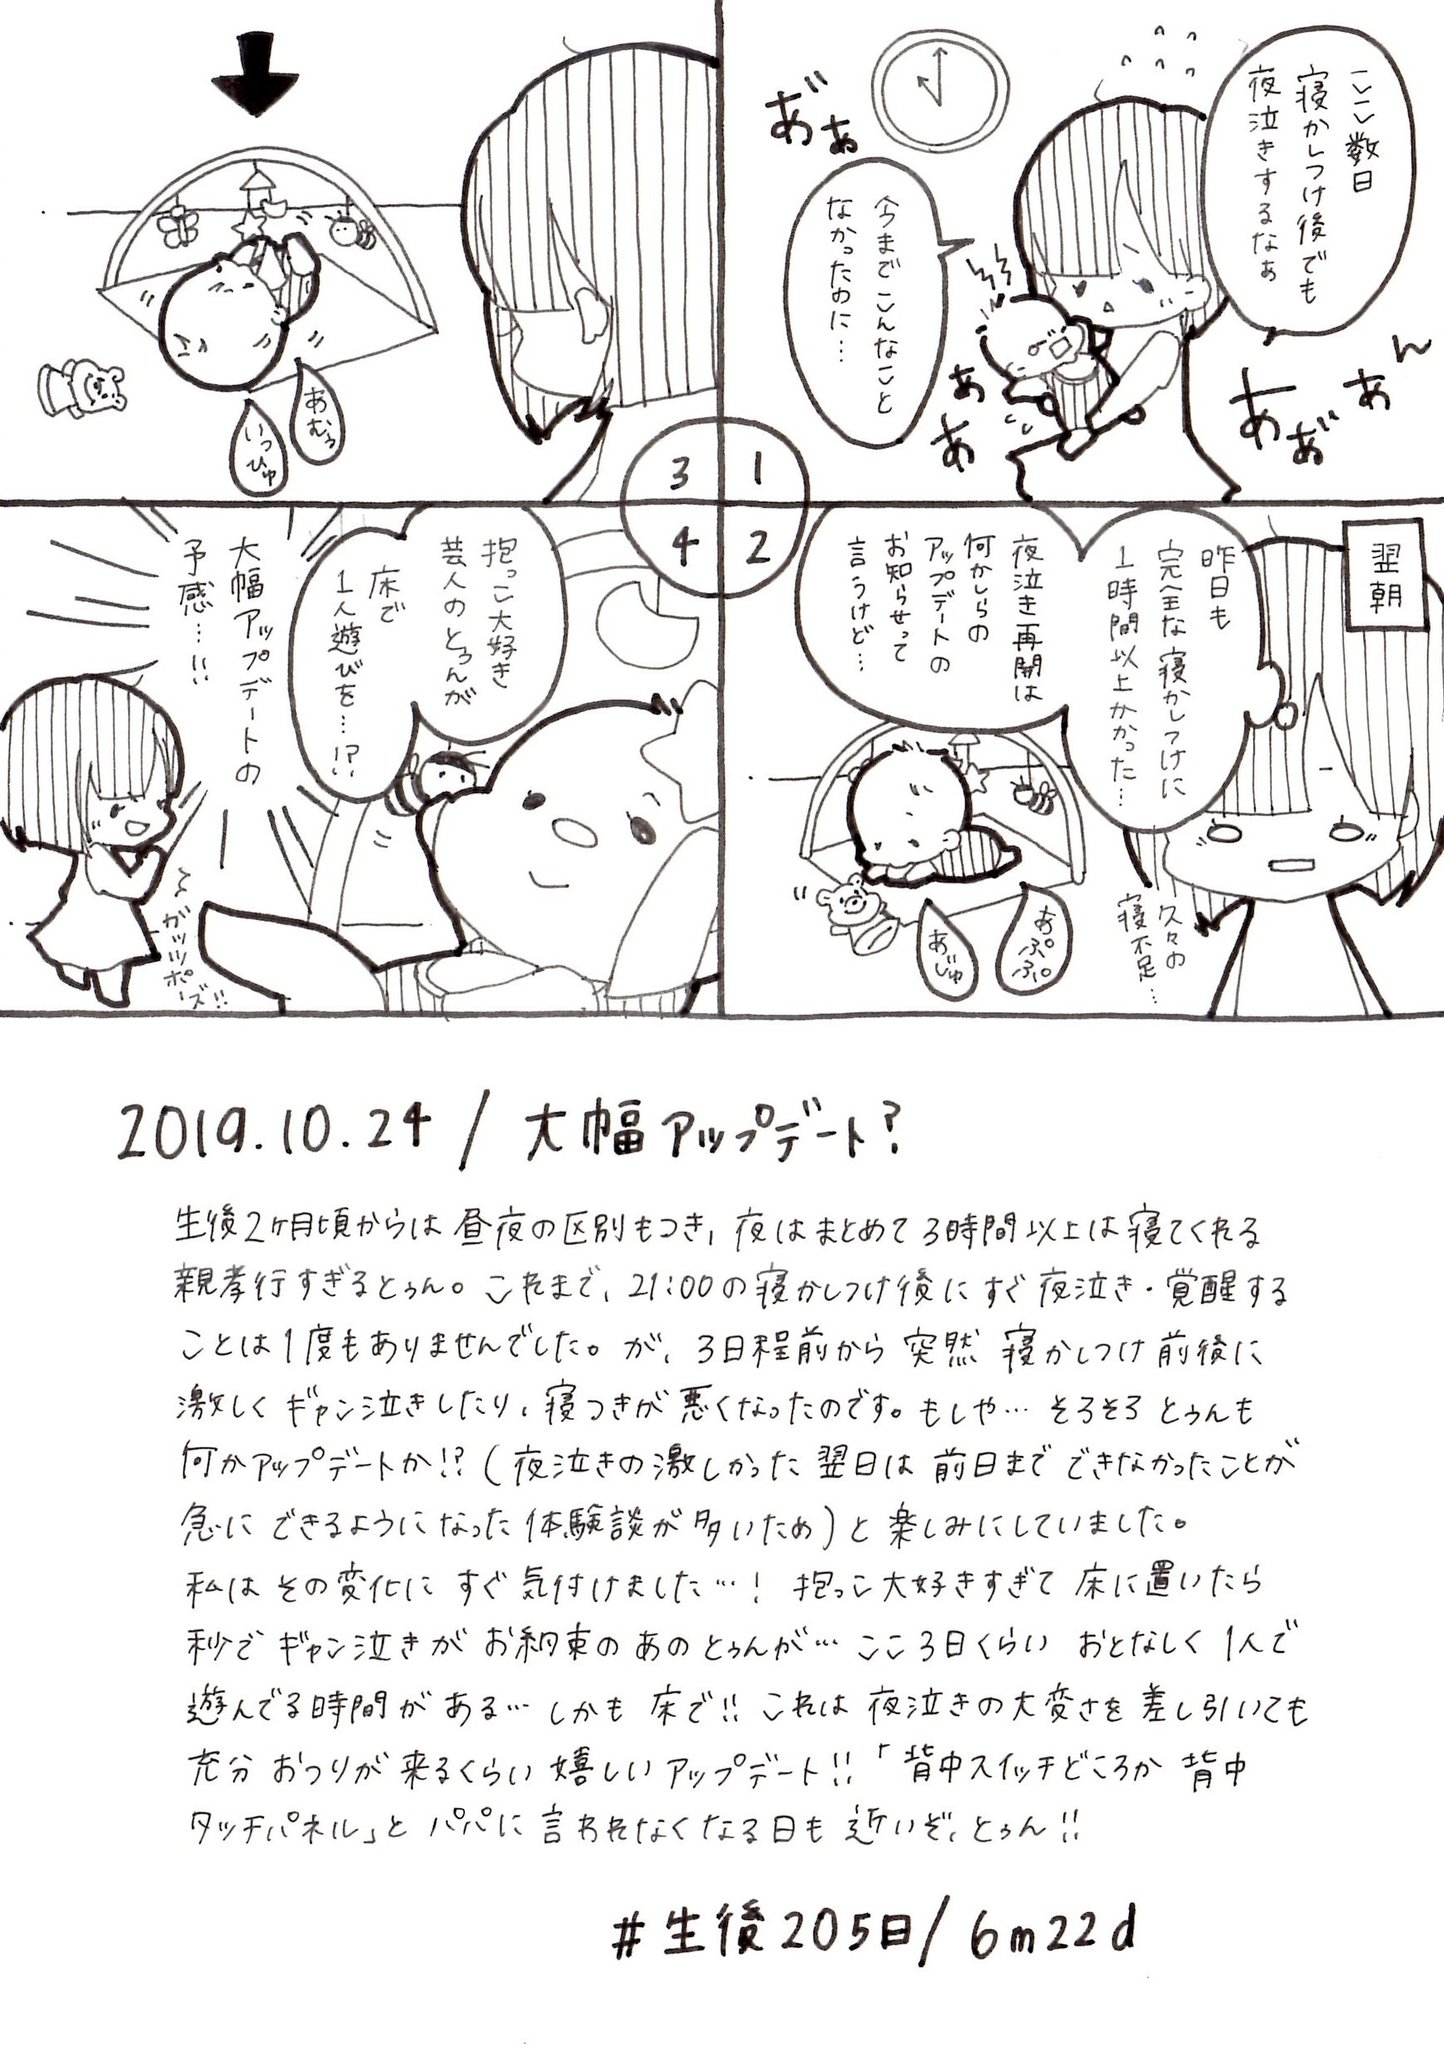 ここ数日
寝かしつけ後でも
夜泣きするなぁ
あ゛ぁ
今までこんなこと
なかったのに…
ぁあ
あぁ゛ぁん
1
翌朝
昨日も
完全な寝かしつけに
1時間以上かかった…
夜泣き再開は
何かしらの
アップデートの
お知らせって
言うけど…
久々の
寝不足…
おぷぷ
あじゅ
2
あむぅ
いっひゅ
3
抱っこ大好き
芸人のとぅんが
床で
1人遊びを…!?
大幅アップデートの
予感…!!
ガッツポーズ!!
4
2019.10.24 / 大幅アップデート?
生後2ヶ月頃からは昼夜の区別もつき、夜はまとめて3時間以上は寝てくれる
親孝行すぎるとぅん。これまで、21:00の寝かしつけ後にすぐ夜泣き・覚醒する
ことは1度もありませんでした。が、3日程前から突然 寝かしつけ前後に
激しくギャン泣きしたり、寝つきが悪くなったのです。もしや…そろそろとぅんも
何かアップデートか!?(夜泣きの激しかった翌日は前日までできなかったことが
急にできるようになった体験談が多いため)と楽しみにしていました。
私はその変化にすぐ気付けました…! 抱っこ大好きすぎて床に置いたら
秒でギャン泣きがお約束のあのとぅんが…ここ3日くらいおとなしく1人で
遊んでる時間がある…しかも床で!!これは夜泣きの大変さを差し引いても
充分おつりが来るくらい嬉しいアップデート!!「背中スイッチどころか背中
タッチパネル」とパパに言われなくなる日も近いぞ、とぅん!!
#生後205日/6m22d